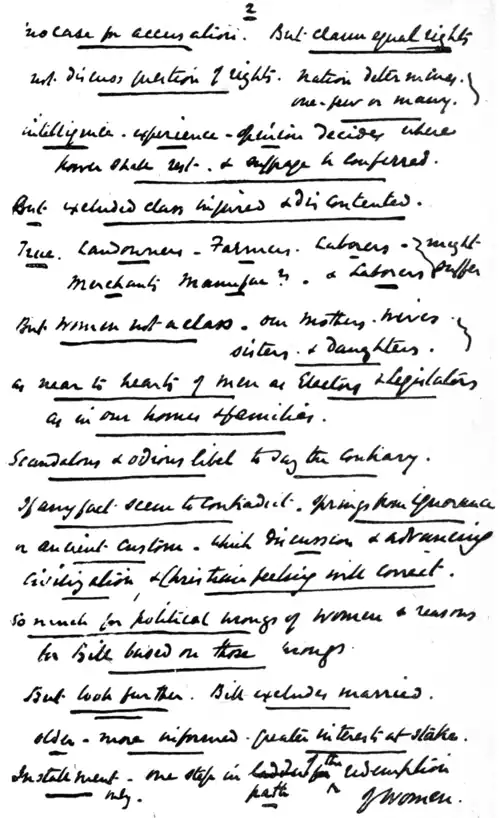 2
no case for accusation. But claim equal rights
not discuss question of rights. Nation determines.
one - few or many.
intelligence - experience - opinion decides where
power shall rest. & suffrage be conferred.
But excluded class injured & discontented.
True. Landowners - Farmers. Laborers - might
Merchants Manufrs. & Laborers suffer
But Women not a class. our mothers. wives.
sisters. & daughters.
as near to hearts of men as Electors & Legislators
as in our homes & families.
Scandalous & odious libel to say the contrary.
If any fact seem to contradict. springs from ignorance
or ancient custom. which discussion & advancing
civilization, & Christian feeling will correct.
So much for political wrongs of women & reasons
for Bill based on those wrongs.
But look further. Bill excludes married.
older - more informed. greater interest at stake.
Instalment - one step in ladder for the redemption
only. path of Women.